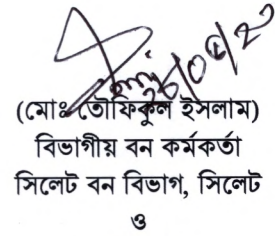 (মোঃ তৌফিকুল ইসলাম)
বিভাগীয় বন কর্মকর্তা
সিলেট বন বিভাগ, সিলেট
ও